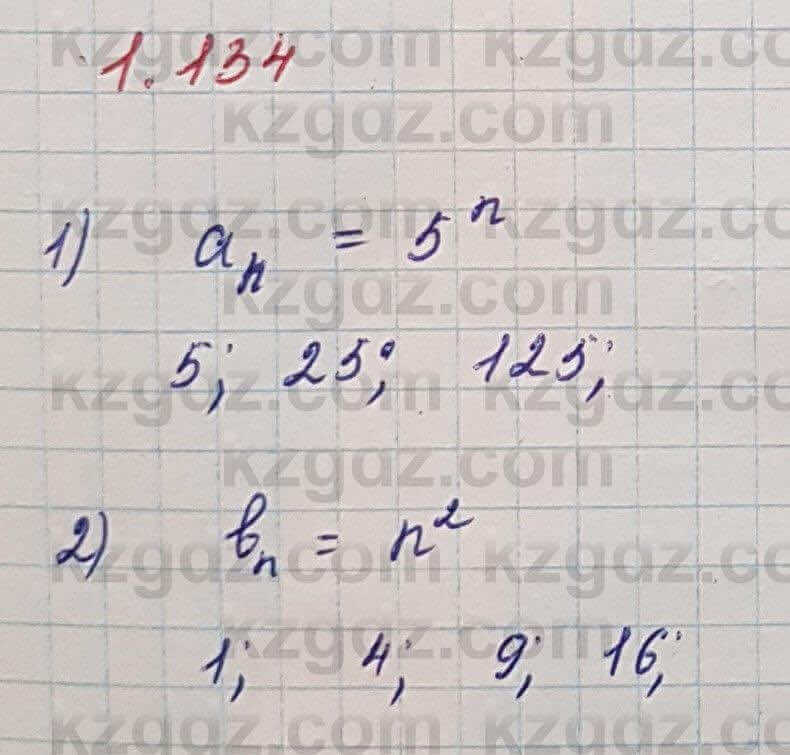 kzgdz.com kzgdz.com
1.134
kzgdz.com
kzgdz.com kzgdz.com
1) aₙ = 5ⁿ
kzgdz.com
5; 25; 125;
kzgdz.com kzgdz.com
kzgdz.com
2) bₙ = n²
kzgdz.com kzgdz.com
kzgdz.com
1; 4; 9; 16;
kzgdz.com kzgdz.com